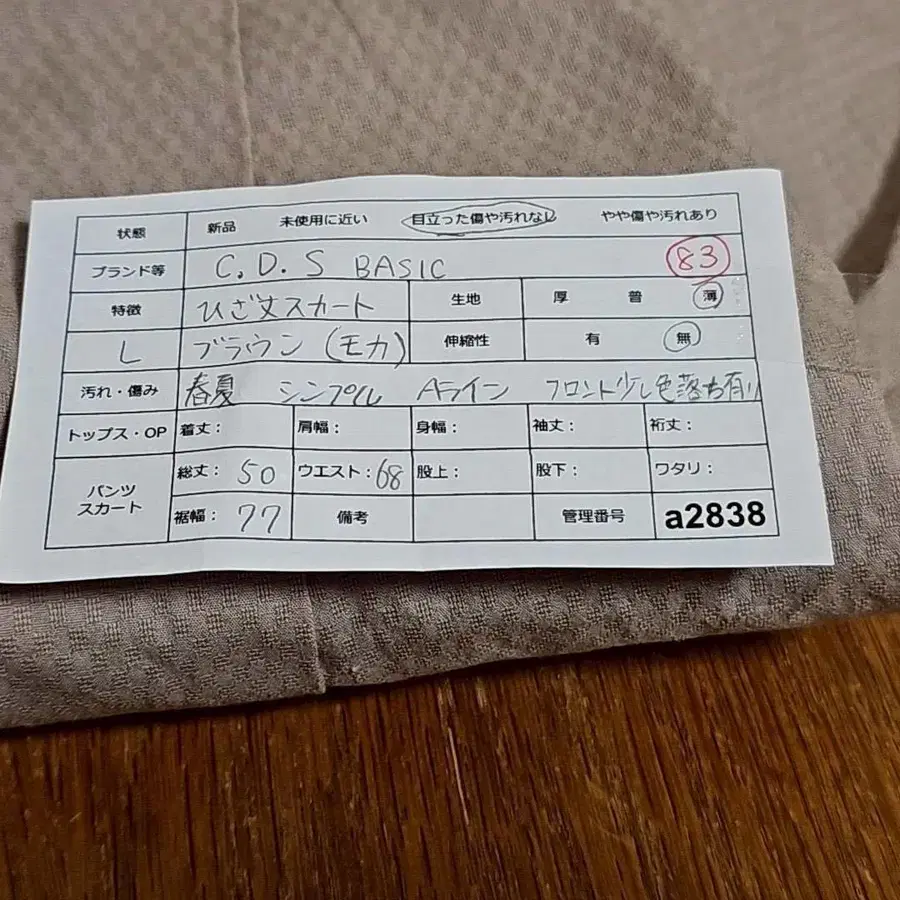 状態 新品 未使用に近い 目立った傷や汚れなし やや傷や汚れあり
ブランド等 C.D.S BASIC 83
特徴 ひざ丈スカート 生地 厚 普 薄
L ブラウン(モカ) 伸縮性 有 無
汚れ・傷み 春夏 シンプル Aライン フロント少し色落ち有り
トップス・OP 着丈： 肩幅： 身幅： 袖丈： 裄丈：
パンツ スカート 総丈：50 ウエスト：68 股上： 股下： ワタリ：
裾幅：77 備考 管理番号 a2838